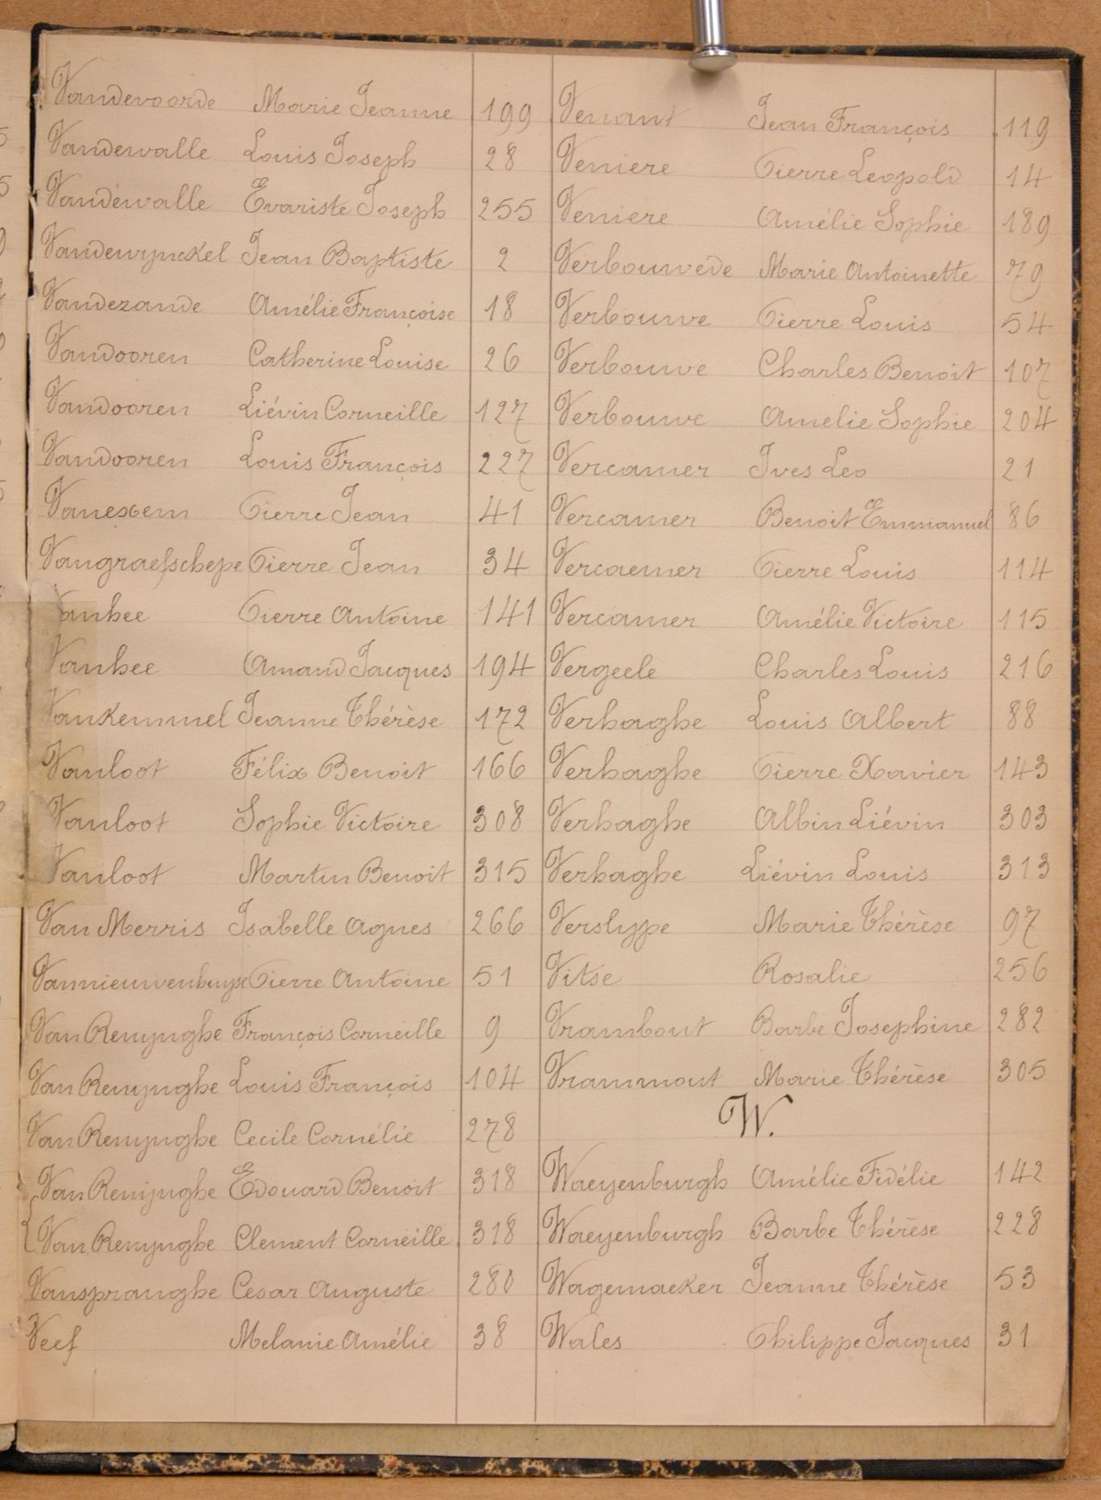 Vandevoorde Marie Jeanne 199
Vandewalle Louis Joseph 28
Vandewalle Evariste Joseph 255
Vandewynckel Jean Baptiste 2
Vandezande Amélie Françoise 18
Vandooren Catherine Louise 26
Vandooren Liévin Corneille 127
Vandooren Louis François 227
Vanexem Pierre Jean 41
Vangraefschepe Pierre Jean 34
Vanhee Pierre Antoine 141
Vanhee Amand Jacques 194
Vankemmel Jeanne Thérèse 172
Vanloot Félix Benoit 166
Vanloot Sophie Victoire 308
Vanloot Martin Benoit 315
Van Merris Isabelle Agnes 266
Vannieuwenhuyse Pierre Antoine 51
Van Renynghe François Corneille 9
Van Renynghe Louis François 104
Van Renynghe Cecile Cornélie 278
Van Renynghe Edouard Benoit 318
Van Renynghe Clement Corneille 318
Vanspranghe Cesar Auguste 280
Veef Melanie Amélie 38
Venant Jean François 119
Veniere Pierre Leopold 14
Veniere Amélie Sophie 189
Verbouwede Marie Antoinette 79
Verbouwe Pierre Louis 54
Verbouwe Charles Benoit 107
Verbouwe Amelie Sophie 204
Vercamer Ives Leo 21
Vercamer Benoit Emmanuel 86
Vercaemer Pierre Louis 114
Vercamer Amélie Victoire 115
Vergeele Charles Louis 216
Verhaghe Louis Albert 88
Verhaghe Pierre Xavier 143
Verhaghe Albin Liévin 303
Verhaghe Liévin Louis 313
Verslype Marie Thérèse 97
Vitse Rosalie 256
Vrambout Barbe Josephine 282
Vrammout Marie Thérèse 305
W.
Waeyenburgh Amélie Fidélie 142
Waeyenburgh Barbe Thérèse 228
Wagemaeker Jeanne Thérèse 53
Wales Philippe Jacques 31